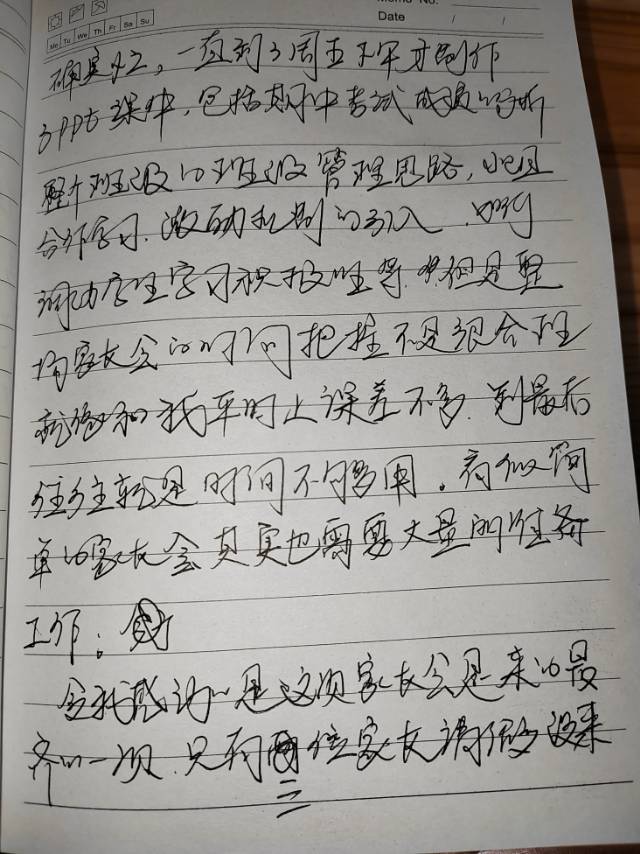 Memo No.
Date / /
Mo Tu We Th Fr Sa Su
确实忙，一直到了周五下午才制作
了PPt课件，包括期中考试成绩的分析
整个班级的班级管理思路，小组
合作学习，激励机制的引入，如何
调动学生学习积极性等，但是整
场家长会的时间把握不是很合理
就像和我平时上课差不多，到最后
往往就是时间不够用。看似简
单的家长会其实也需要大量的准备
工作；
令我感动的是这次家长会是来的最
齐的一次，只有三位家长请假没来